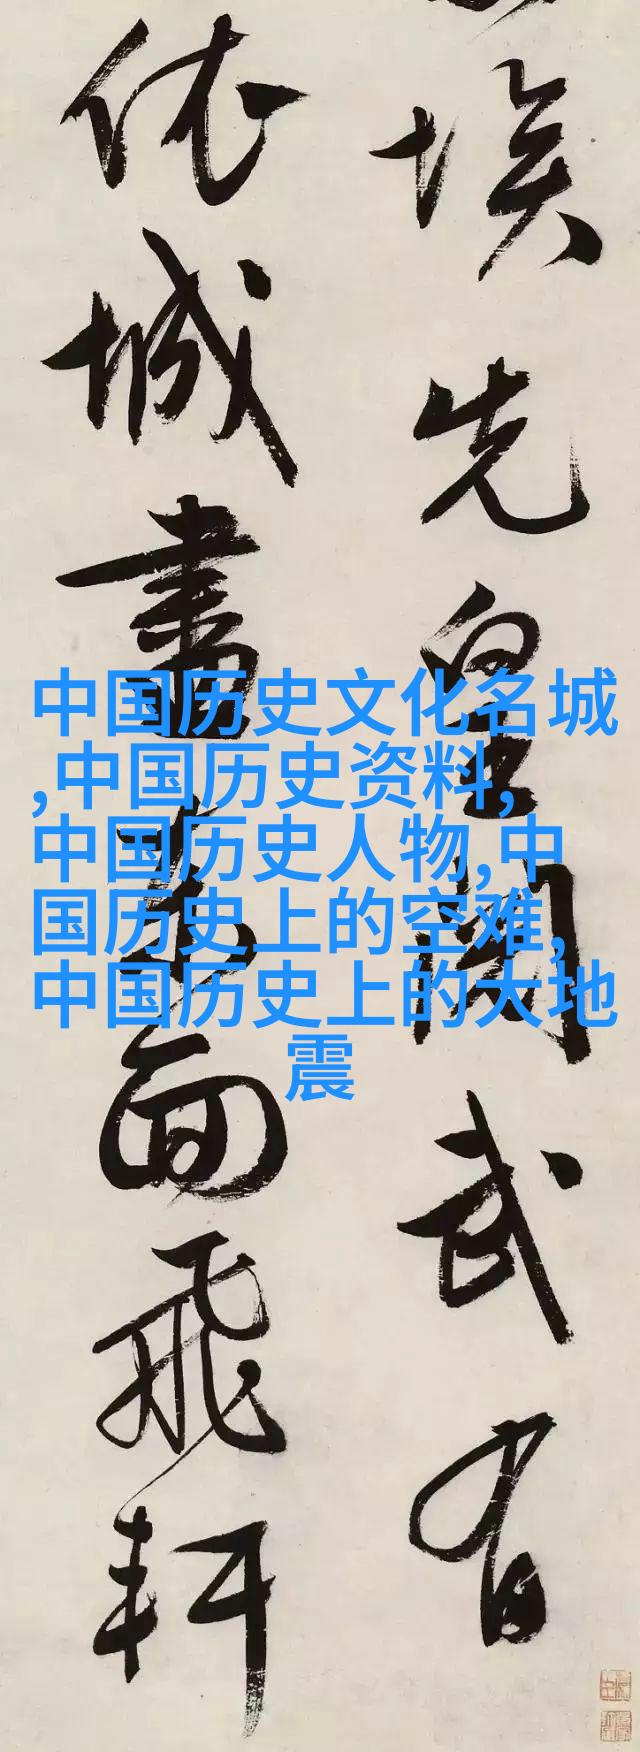 埃先皇閱武有
依城
面飛軒
中国历史文化名城
,中国历史资料,
中国历史人物,中
国历史上的空难,
中国历史上的大地
震